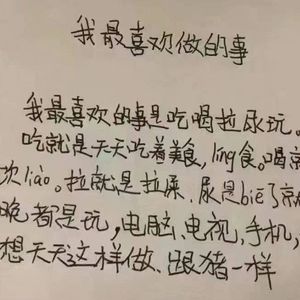 我最喜欢做的事
我最喜欢的事是吃喝拉尿玩。
吃就是天天吃着美食,ling食。喝就
饮liào。拉就是拉屎、尿是biē了就
晚都是玩,电脑、电视、手机,
想天天这样做、跟猪一样